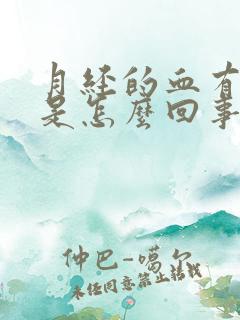 月经的血有
是怎麼回事
仲巴-噶尔
未经同意禁止转载